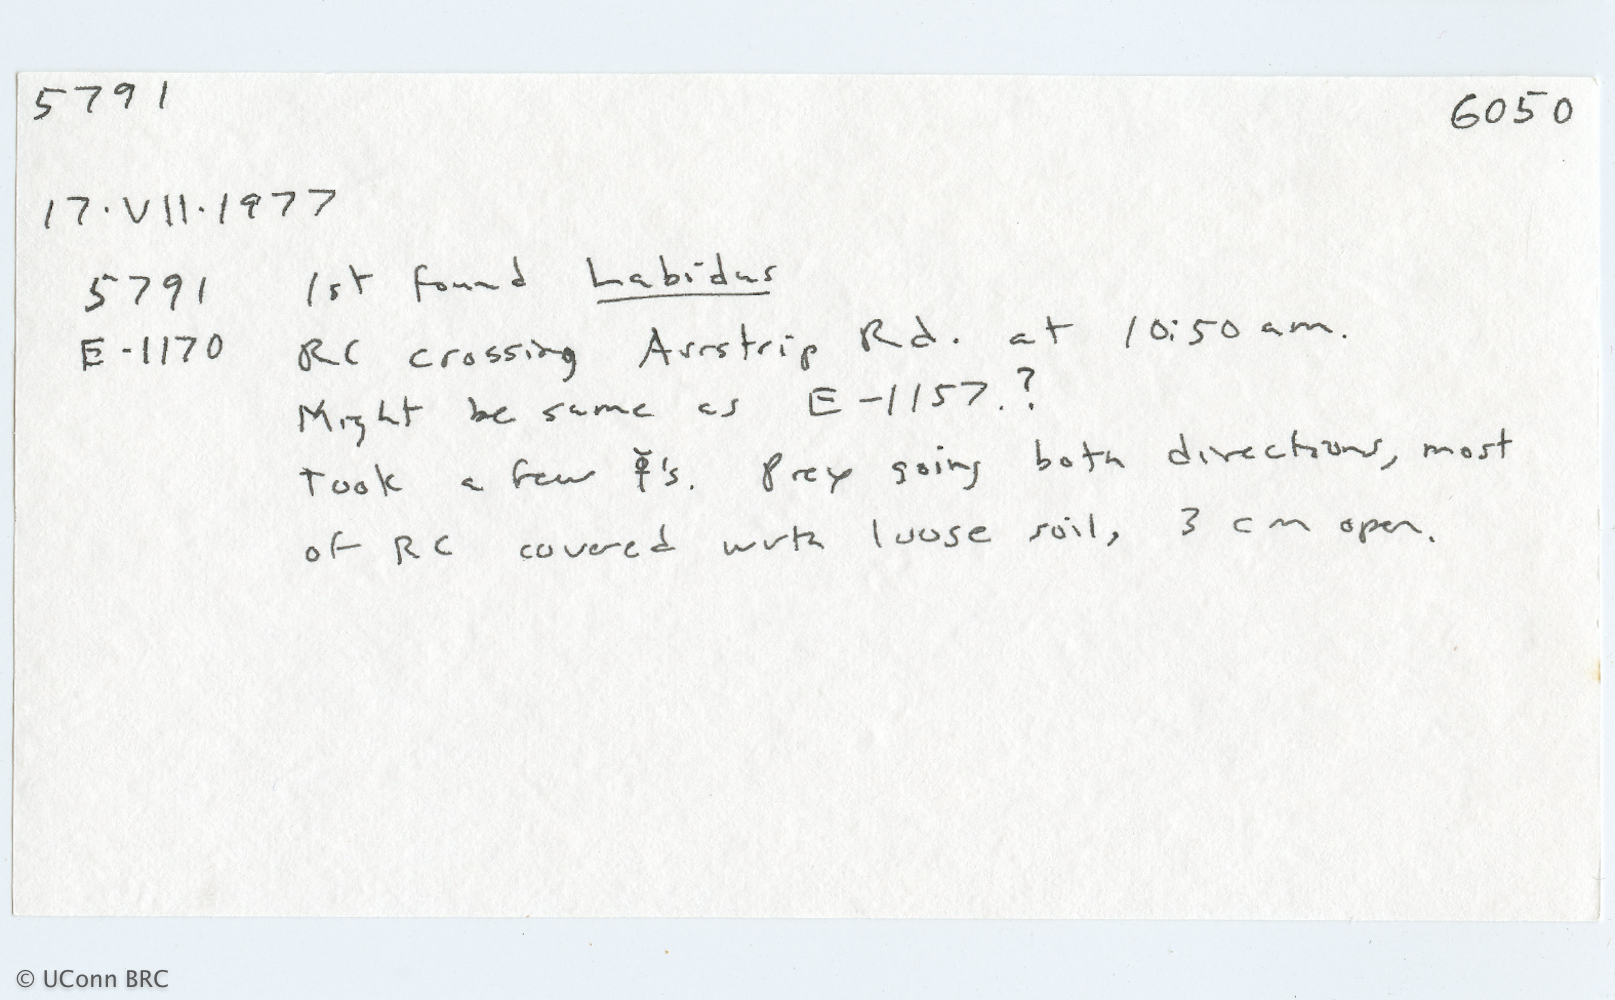 5791 6050
17.VII.1977
5791 1st found Labidus
E-1170 RC crossing Airstrip Rd. at 10:50 am.
Might be same as E-1157.?
Took a few ☿'s. Prey going both directions, most
of RC covered with loose soil, 3 cm open.
© UConn BRC